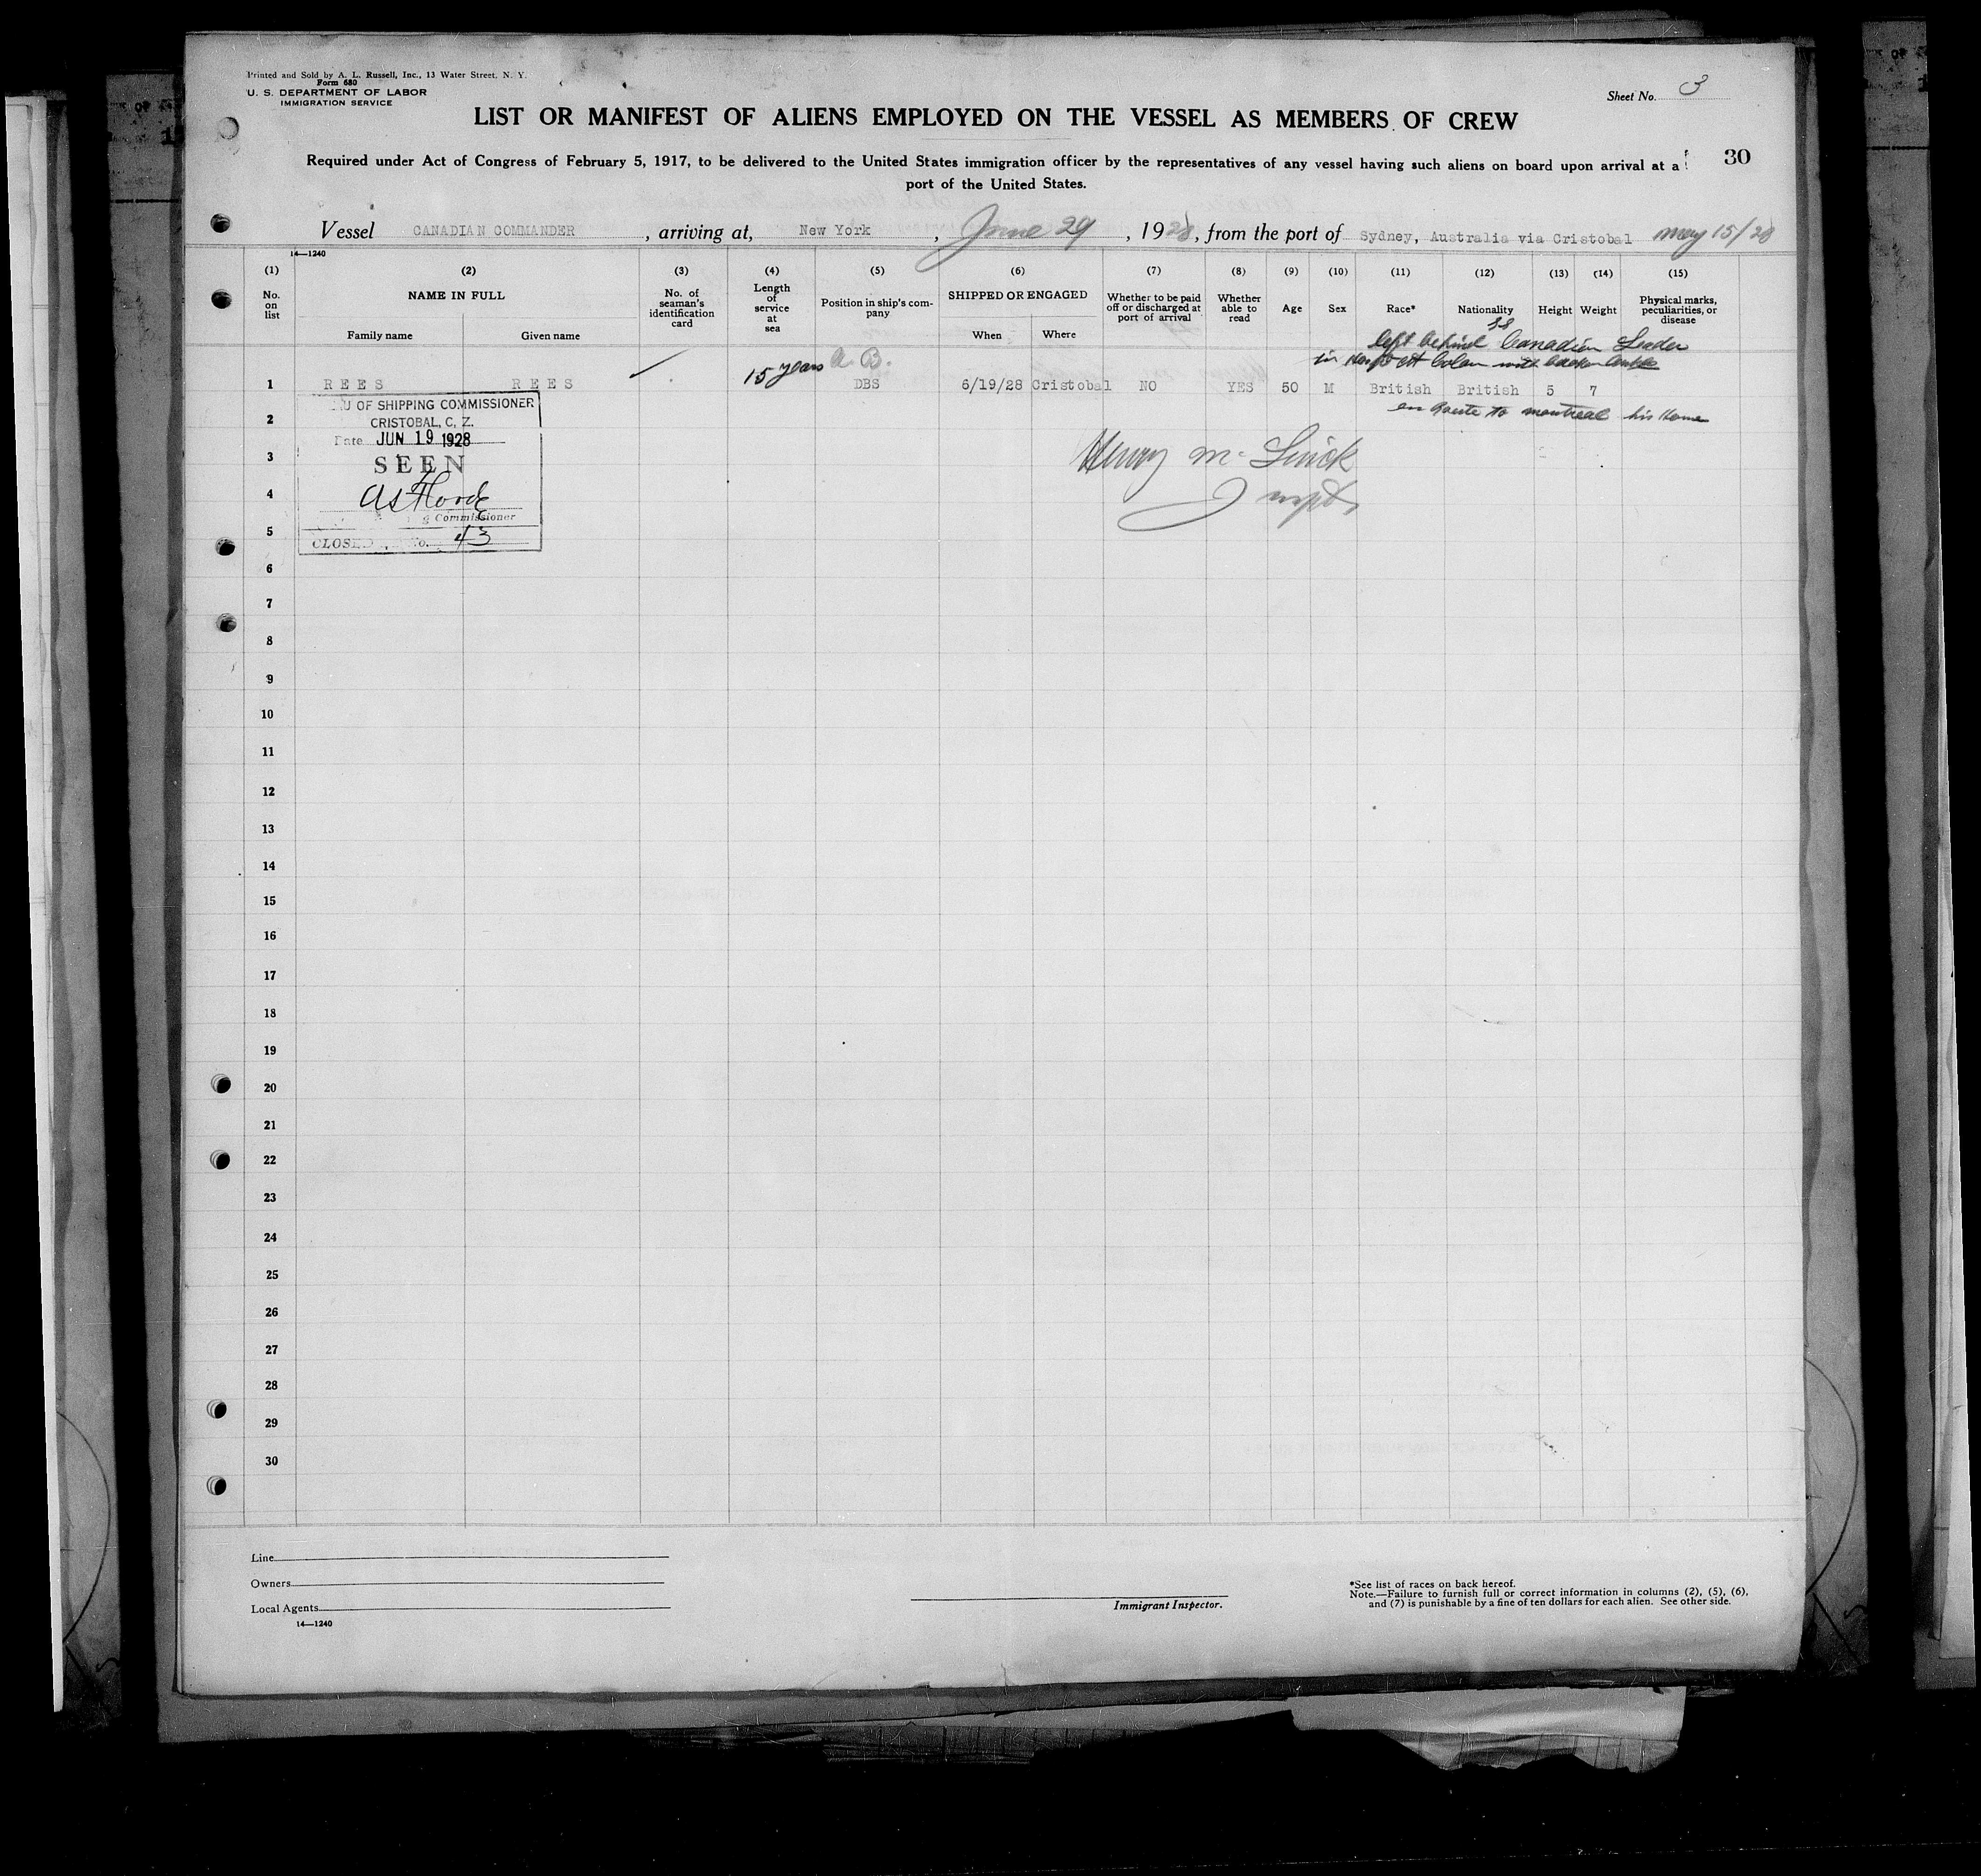 Printed and Sold by A. L. Russell, Inc., 13 Water Street, N. Y.
Form 680
U. S. DEPARTMENT OF LABOR
IMMIGRATION SERVICE
Sheet No. 3
LIST OR MANIFEST OF ALIENS EMPLOYED ON THE VESSEL AS MEMBERS OF CREW
30
Required under Act of Congress of February 5, 1917, to be delivered to the United States immigration officer by the representatives of any vessel having such aliens on board upon arrival at a
port of the United States.
Vessel CANADIAN COMMANDER, arriving at, New York, June 29, 1928, from the port of Sydney, Australia via Cristobal May 15/28
14—1240
(1) (2) (3) (4) (5) (6) (7) (8) (9) (10) (11) (12) (13) (14) (15)
No. on list
NAME IN FULL
Family name Given name
No. of seaman's identification card
Length of service at sea
Position in ship's company
SHIPPED OR ENGAGED
When Where
Whether to be paid off or discharged at port of arrival
Whether able to read
Age
Sex
Race*
Nationality
Height
Weight
Physical marks, peculiarities, or disease
SS
left behind Canadian Leader
in Hospt at Colon with broken ankle
15 years A. B.
1 REES REES DBS 6/19/28 Cristobal NO YES 50 M British British 5 7
en Route to Montreal his Home
U OF SHIPPING COMMISSIONER
CRISTOBAL, C. Z.
Date JUN 19 1928
SEEN
g Commissioner
CLOSED No. 43
Henry
2
3
4
5
6
7
8
9
10
11
12
13
14
15
16
17
18
19
20
21
22
23
24
25
26
27
28
29
30
Line
Owners
Local Agents
14—1240
Immigrant Inspector.
*See list of races on back hereof.
Note.—Failure to furnish full or correct information in columns (2), (5), (6),
and (7) is punishable by a fine of ten dollars for each alien. See other side.